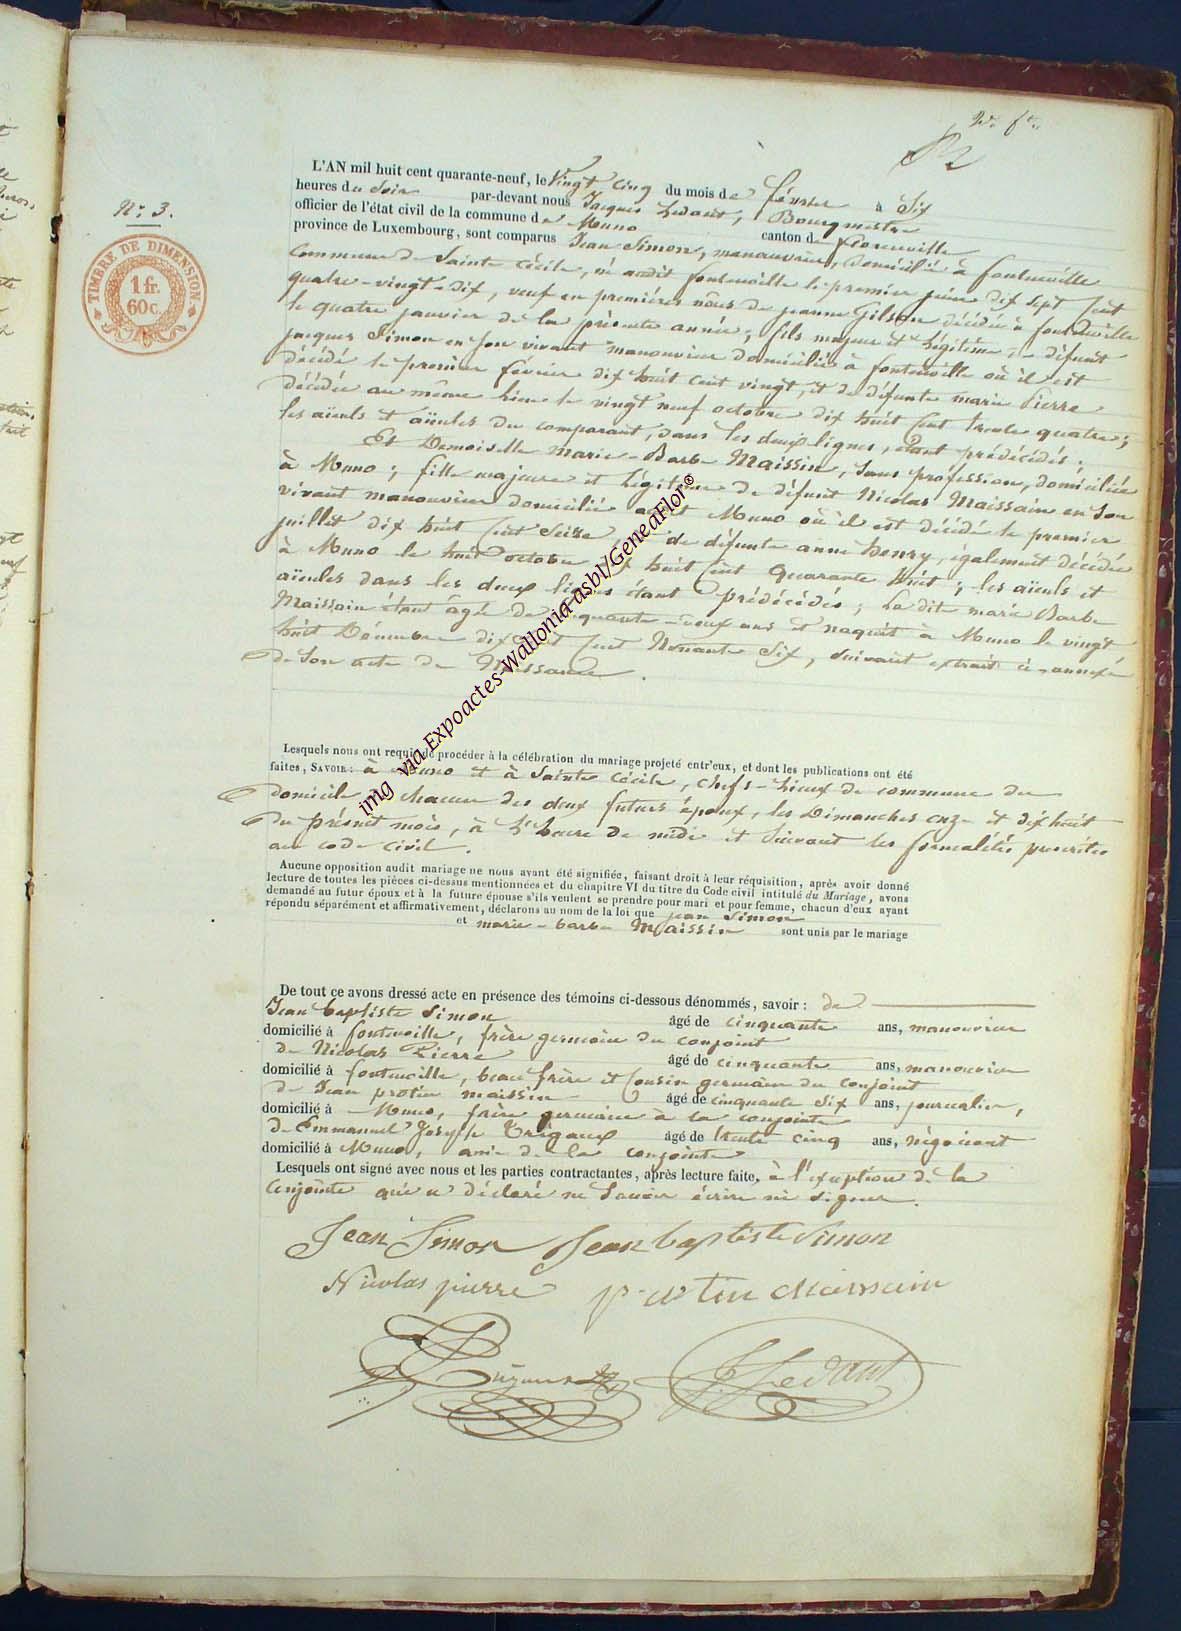 2e. fe.
N° 3.
TIMBRE DE DIMENSION
1 fr.
60 c.
L'AN mil huit cent quarante-neuf, le Vingt cinq du mois de février à Six
heures du Soir par-devant nous Jacques Ledant, Bourgmestre
officier de l'état civil de la commune de Muno canton de florenville
province de Luxembourg, sont comparus Jean Simon, manouvrier, domicilié à fontenoille
commune de Sainte Cécile, né audit fontenoille le premier juin dix sept cent
quatre-vingt-dix, veuf en premières noces de jeanne Gilson décédée à fontenoille
le quatre janvier de la présente année; fils majeur et légitime de défunt
jacques Simon en son vivant manouvrier domicilié à fontenoille où il est
décédé le premier février dix huit cent vingt, et de défunte marie Pierre
décédée au même lieu le vingt neuf octobre dix huit cent trente quatre;
les aïeuls et aïeules du comparant, dans les deux lignes, étant prédécédés.
Et Demoiselle marie-Barbe Maissin, sans profession, domiciliée
à Muno; fille majeure et légitime de défunt Nicolas Maissin en son
vivant manouvrier domicilié audit Muno où il est décédé le premier
juillet dix huit cent seize et de défunte anne henry, également décédée
à Muno le huit octobre dix huit cent quarante huit; les aïeuls et
aïeules dans les deux lignes étant prédécédés; la dite marie Barbe
Maissin étant âgée de cinquante-deux ans et naquit à Muno le vingt
huit Décembre dix sept cent Nonante Six, suivant extrait ci-annexé
de son acte de Naissance.
Lesquels nous ont requis de procéder à la célébration du mariage projeté entr'eux, et dont les publications ont été
faites, SAVOIR: à Muno et à Sainte Cécile, chefs-lieux de commune du
domicile de chacun des deux futurs époux, les Dimanches onze et dix huit
du présent mois, à l'heure de midi et suivant les formalités prescrites
au code civil.
Aucune opposition audit mariage ne nous ayant été signifiée, faisant droit à leur réquisition, après avoir donné
lecture de toutes les pièces ci-dessus mentionnées et du chapitre VI du titre du Code civil intitulé du Mariage, avons
demandé au futur époux et à la future épouse s'ils veulent se prendre pour mari et pour femme, chacun d'eux ayant
répondu séparément et affirmativement, déclarons au nom de la loi que jean Simon
et marie-barbe Maissin sont unis par le mariage
De tout ce avons dressé acte en présence des témoins ci-dessous dénommés, savoir: de
Jean baptiste Simon âgé de cinquante ans, manouvrier
domicilié à fontenoille, frère germain du conjoint
de Nicolas Pierre âgé de cinquante ans, manouvrier
domicilié à fontenoille, beau frère et cousin germain du conjoint
de Jean protin maissin âgé de cinquante six ans, journalier,
domicilié à Muno, frère germain à la conjointe
de Emmanuel Joseph Trigaux âgé de trente cinq ans, négociant
domicilié à Muno, ami de la conjointe
Lesquels ont signé avec nous et les parties contractantes, après lecture faite, à l'exeption de la
conjointe qui a déclaré ne savoir écrire ni signer.
Jean Simon Jean baptiste Simon
Nicolas pierre protin Maissin
Trigaux J. Ledant
img via Expoactes-Wallonia-asbl/GeneaFlor®